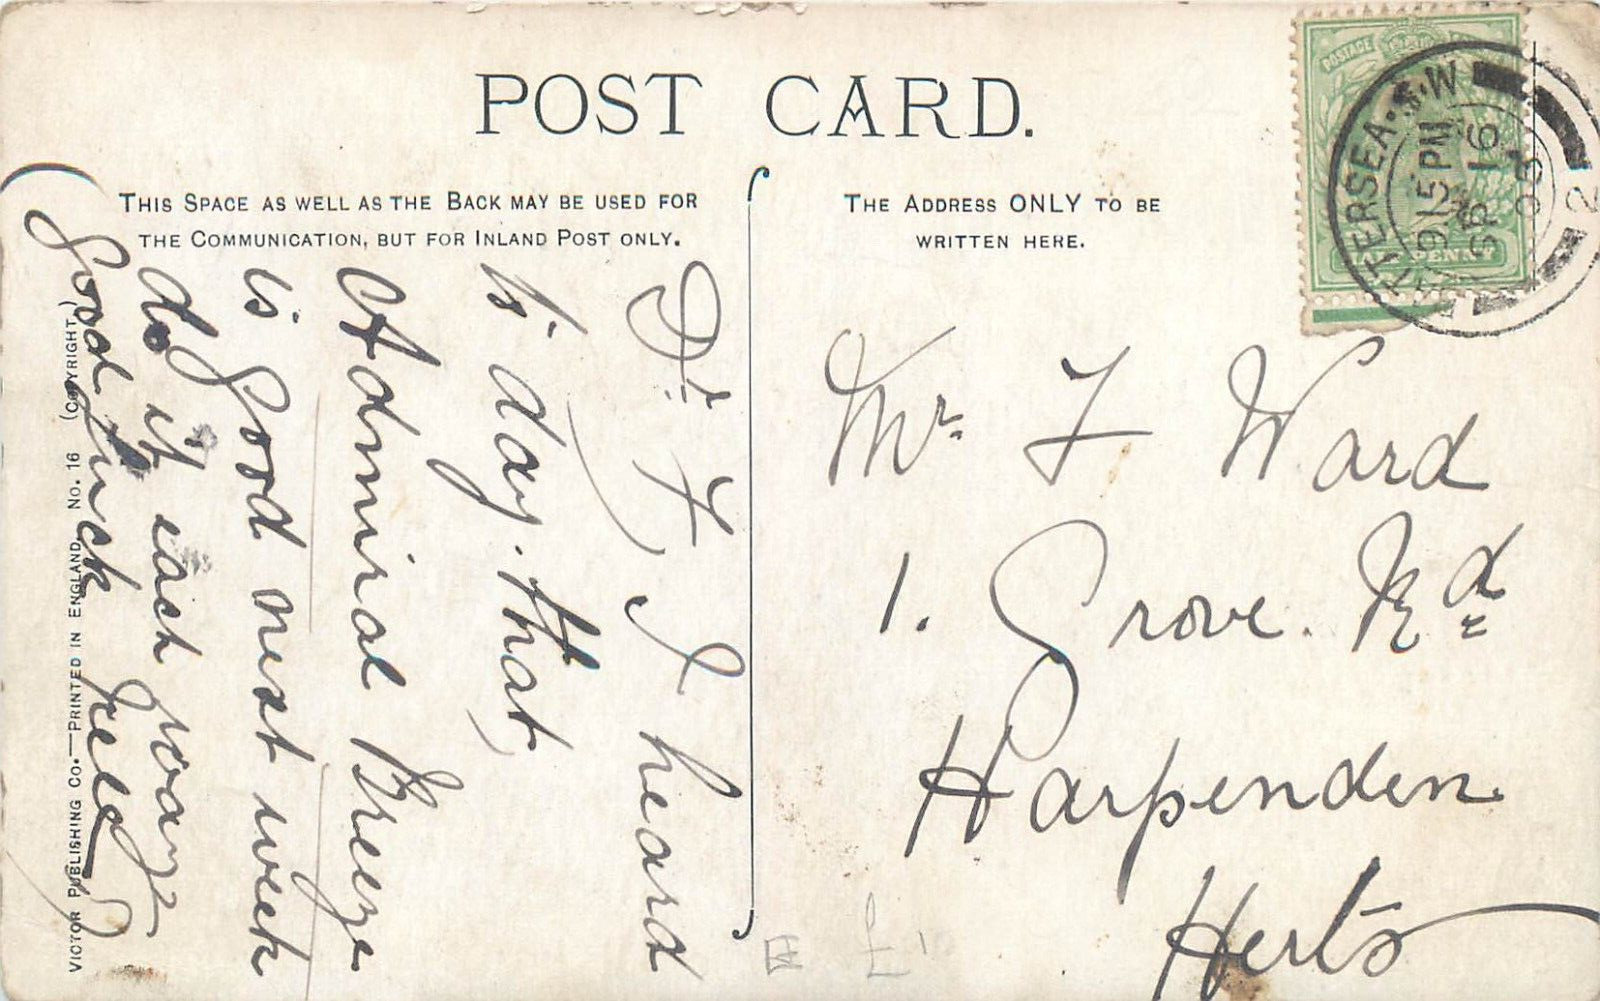 POST CARD.
THIS SPACE AS WELL AS THE BACK MAY BE USED FOR
THE COMMUNICATION, BUT FOR INLAND POST ONLY.
THE ADDRESS ONLY TO BE
WRITTEN HERE.
POSTAGE
HALFPENNY
BATTERSEA. S.W
915 PM
SP 16
08
2
Dr F, I heard
to day. that,
Admiral Breeze
is good next week
do it each way
good luck
Mr. F Ward
1. Grove. Rd
Harpenden
Herts
VICTOR PUBLISHING CO.—PRINTED IN ENGLAND. NO. 16 (COPYRIGHT.)